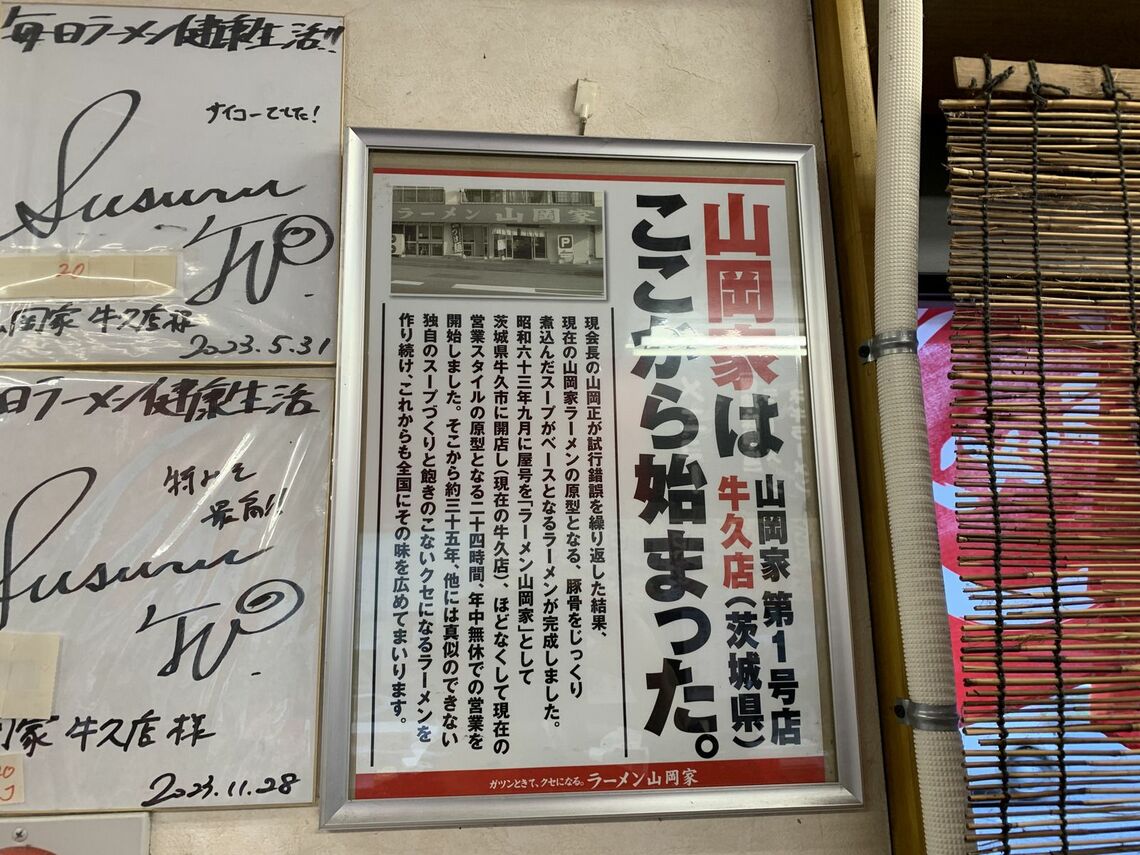 毎日ラーメン健康生活!!
サイコーでした!
Susuru
TV
20
山岡家 牛久店様
2023.5.31
日ラーメン健康生活
特みそ
最高!!
Susuru
TV
岡家 牛久店 様
2023.11.28
ラーメン 山岡家
P
山岡家は
ここから始まった。
山岡家 第1号店
牛久店(茨城県)
現会長の山岡正が試行錯誤を繰り返した結果、
現在の山岡家ラーメンの原型となる、豚骨をじっくり
煮込んだスープがベースとなるラーメンが完成しました。
昭和六十三年九月に屋号を「ラーメン山岡家」として
茨城県牛久市に開店し(現在の牛久店)、ほどなくして現在の
営業スタイルの原型となる二十四時間、年中無休での営業を
開始しました。そこから約三十五年、他には真似のできない
独自のスープづくりと飽きのこないクセになるラーメンを
作り続け、これからも全国にその味を広めてまいります。
ガツンときて、クセになる。ラーメン山岡家